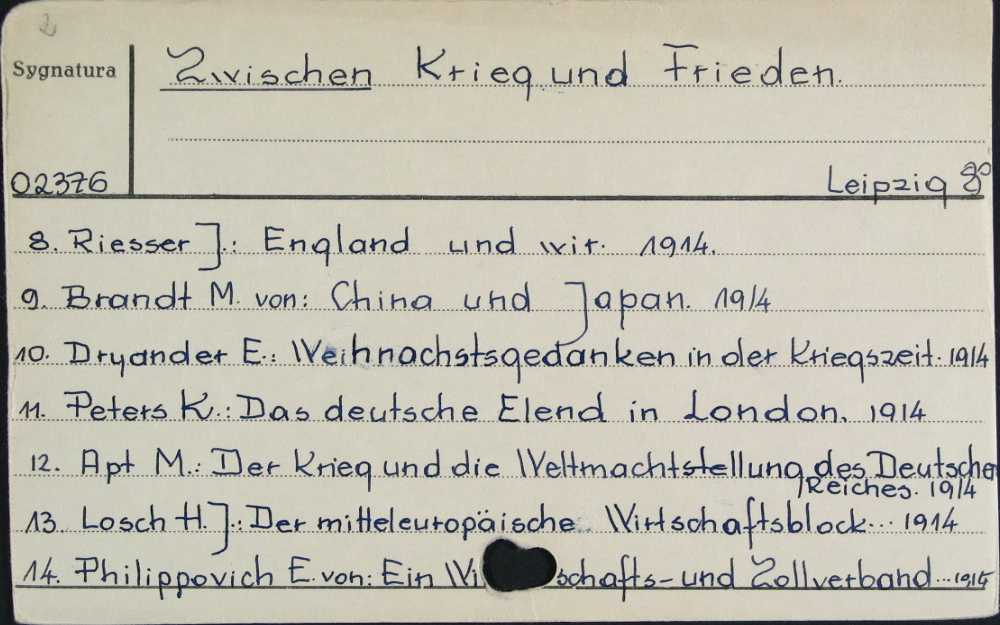 2
Sygnatura
Zwischen Krieg und Frieden.
02376
Leipzig 8°
8. Riesser J.: England und wir. 1914.
9. Brandt M. von: China und Japan. 1914
10. Dryander E.: Weihnachstsgedanken in der Kriegszeit. 1914
11. Peters K.: Das deutsche Elend in London. 1914
12. Apt M.: Der Krieg und die Weltmachtstellung des Deutschen
Reiches. 1914
13. Losch H. J.: Der mitteleuropäische Wirtschaftsblock... 1914
14. Philippovich E. von: Ein Wi schafts- und Zollverband... 1915